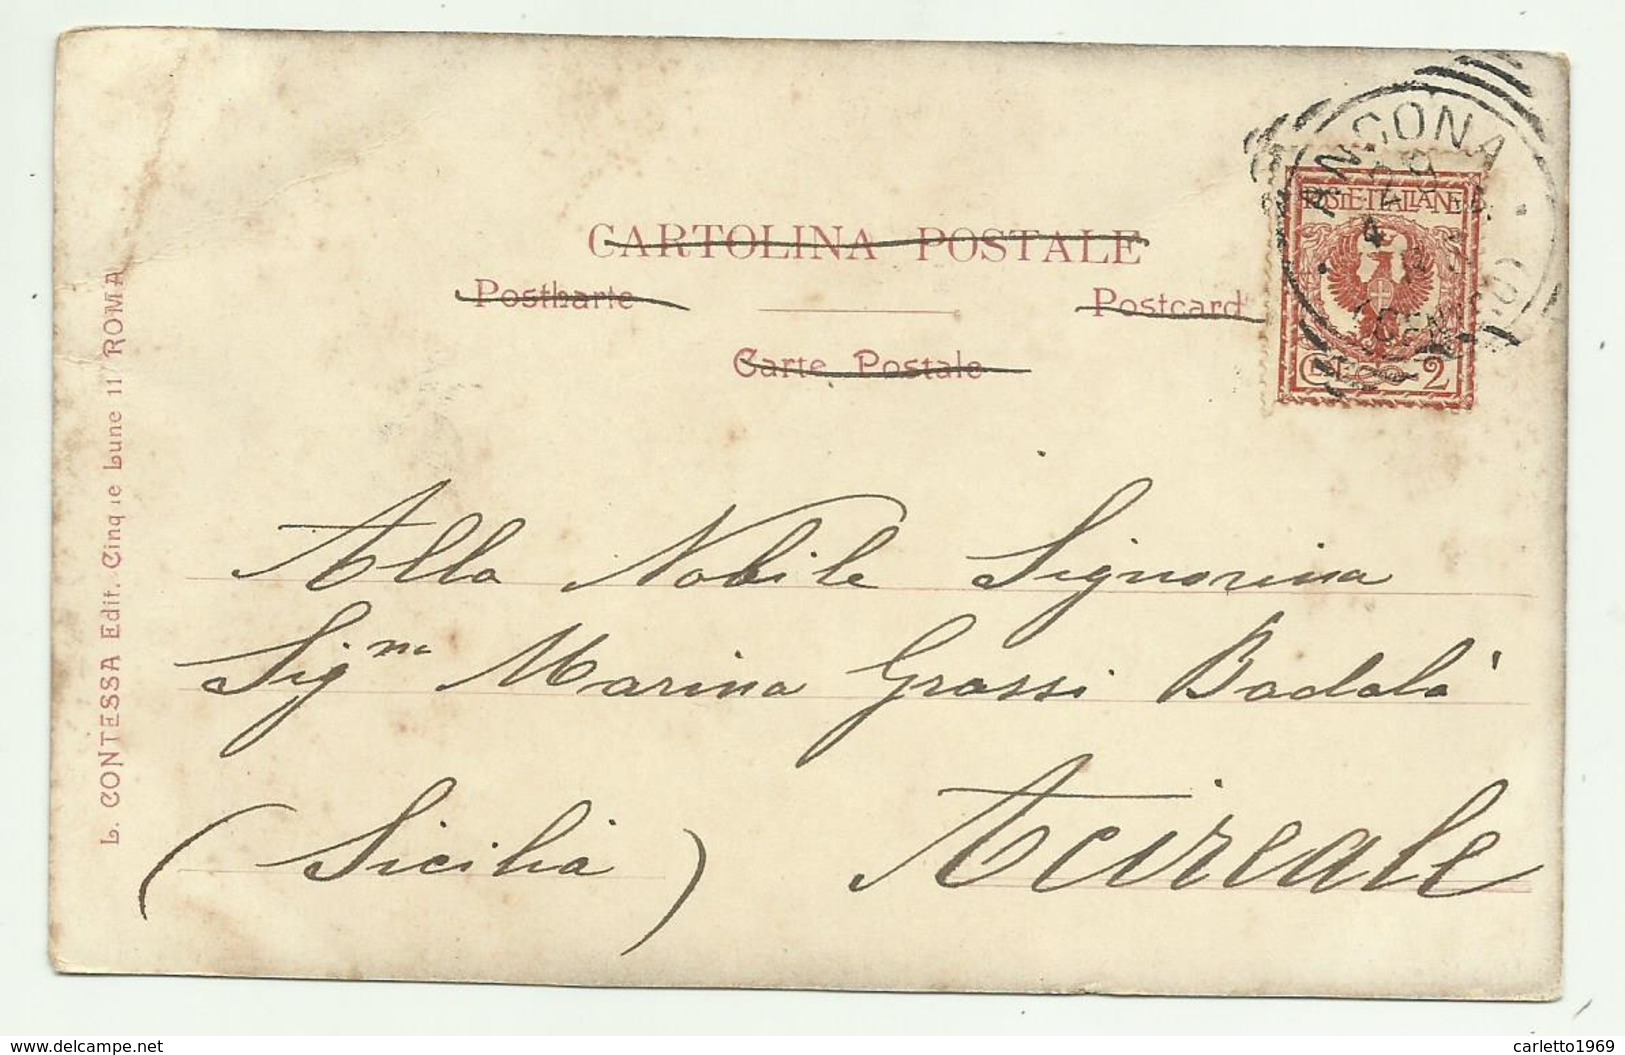 CARTOLINA POSTALE
Postkarte
Postcard
Carte Postale
ANCONA
POSTE ITALIANE
CENT. 2
Alla Nobile Signorina
Sig.na Marina Grassi Badalà
(Sicilia) Acireale
L. CONTESSA Edit. Cinque Lune 11 ROMA
www.delcampe.net
carletto1969